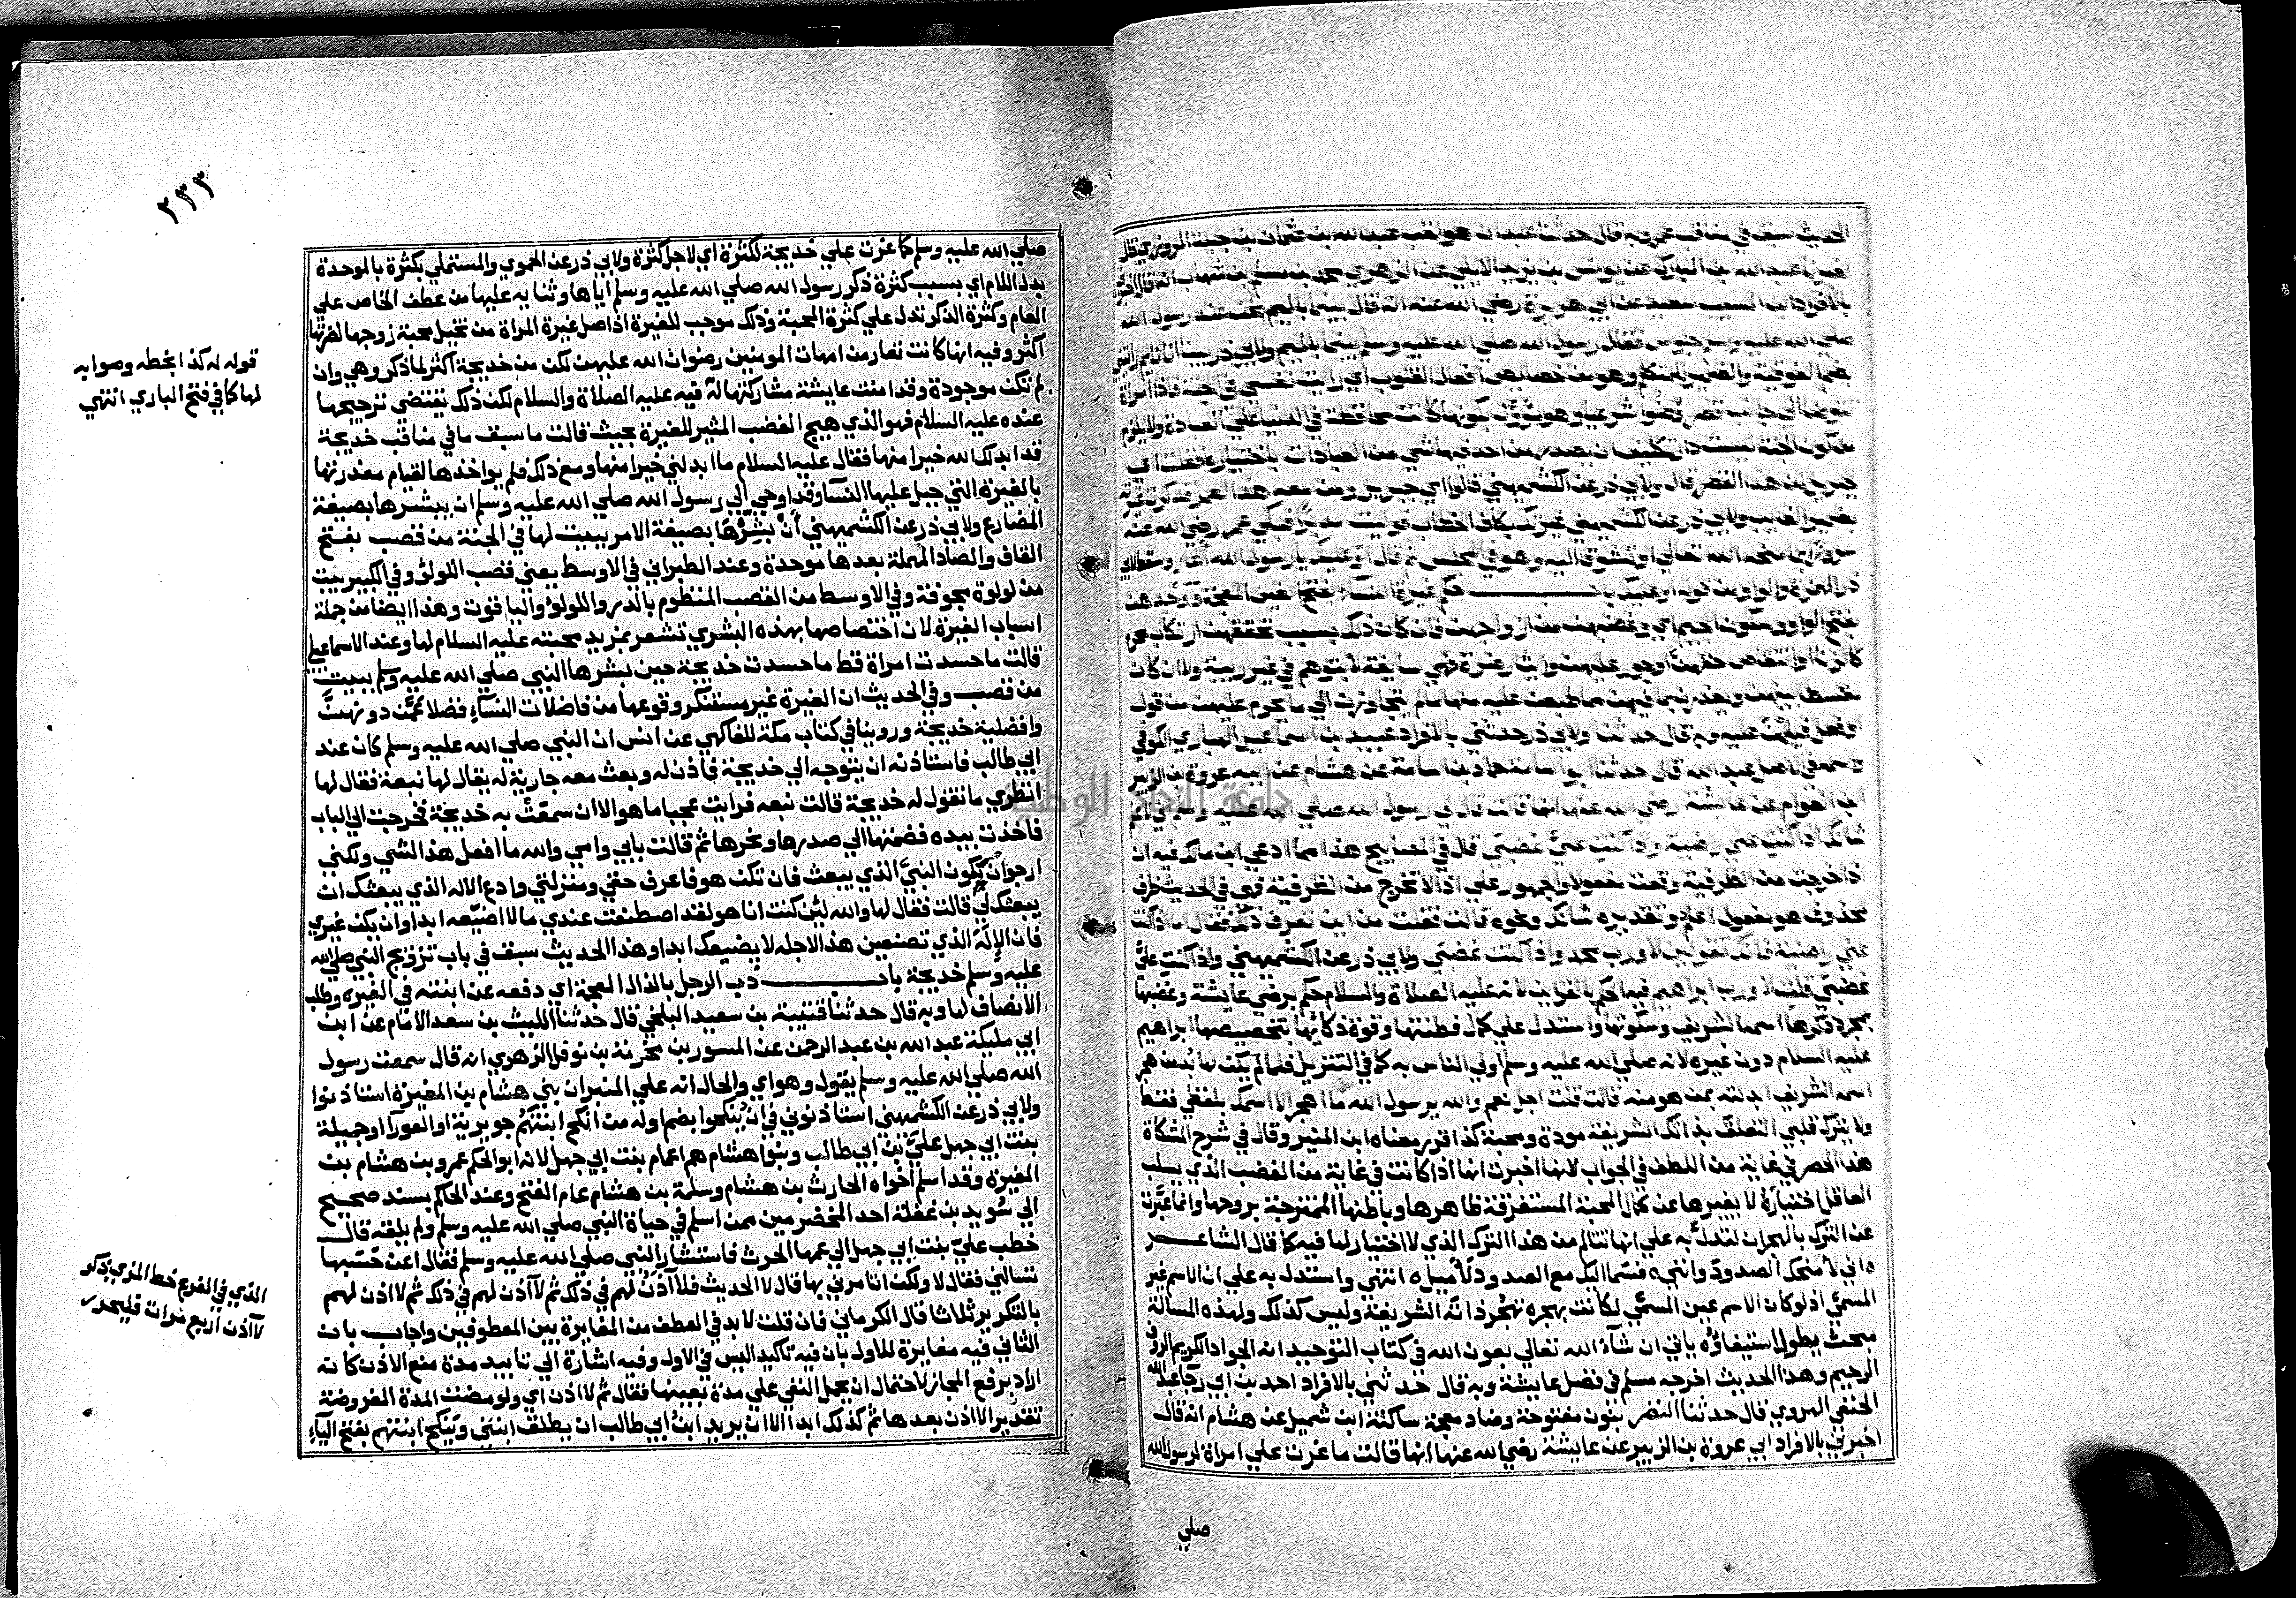 الحديث سبق في مناقب عمر وبه قال حدثنا عبدان هو لقب عبد الله بن عثمان بن جبلة المروزي قال
اخبرنا عبد الله بن المبارك عن يونس بن يزيد الايلي عن الزهري محمد بن مسلم بن شهاب انه قال اخبرني
بالافراد ابن المسيب سعيد عن ابي هريرة رضي الله عنه انه قال بينما بالميم نحن عند رسول الله
صلى الله عليه وسلم جلوس فقال رسول الله صلى الله عليه وسلم بينما بالميم ولابي ذر بينا انا نايم رايتني
بضم الفوقية والضمير للمتكلم وهو من خصايص افعال القلوب اي رايت نفسي في الجنة فاذا امراة
تتوضا الي جانب قصر وضوا شرعيا
جبريل لمن هذا القصر قال ولابي ذر عن الكشميهني قالوا اي جبريل ومن معه هذا لعمر فذكرت غيرته
بضمير الغايب ولابي ذر عن الكشميهني غيرتك بكاف الخطاب فوليت مدبرا فبكي عمر رضي الله عنه
وهو في المجلس ثم قال او عليك يا رسول الله اغار
باب حكم غيرة النساء بفتح الغين المعجمة ووجدهن
بفتح الواو وسكون الجيم اي وغضبهن من ازواجهن فان كان ذلك بسبب تحققهن ارتكاب محرم
او فعل فيأثمن عليه وبه قال حدثنا ولابي ذر حدثني بالافراد عبيد بن اسماعيل الهباري الكوفي
واسمه في الاصل عبد الله قال حدثنا ابو اسامة حماد بن اسامة عن هشام عن ابيه عروة بن الزبير
ابن العوام عن عايشة رضي الله عنها انها قالت قال لي رسول الله صلى الله عليه وسلم اني لاعلم
شانك اذا كنت عني راضية واذا كنت علي غضبي قال في المصابيح هذا مما ادعي ابن مالك فيه ان
اذا خرجت من الظرفية وقعت مفعولا والجمهور علي ان اذا لا تخرج من الظرفية فهي في الحديث ظرف
لمحذوف هو مفعول اعلم وتقديره شانك ونحوه قالت فقلت من اين تعرف ذلك فقال اما اذا كنت
عني راضية فانك تقولين لا ورب محمد واذا كنت غضبي ولابي ذر عن الكشميهني واذا كنت علي
غضبي قلت لا ورب ابراهيم فيه الحكم بالقراين لانه عليه الصلاة والسلام حكم برضي عايشة وغضبها
بمجرد ذكرها اسمه الشريف وسكوتها واستدل علي كمال فطنتها وقوة ذكائها بتخصيصها ابراهيم
عليه السلام دون غيره لانه صلي الله عليه وسلم اولي الناس به كما في التنزيل فلما لم يكن لها بد من هجر
اسمه الشريف ابدلته بمن هو منه قالت قلت اجل نعم والله يرسول الله ما اهجر الا اسمك بلفظي فقط
ولا يترك قلبي التعلق بذاتك الشريفة مودة ومحبة كذا قرر معناه ابن المنير وقال في شرح المشكاة
هذا الحصر في غاية من اللطف في الجواب لانها اخبرت انها اذا كانت في غاية من الغضب الذي يسلب
العاقل اختياره لا يغيرها عن كمال المحبة المستغرقة ظاهرها وباطنها الممتزجة بروحها وانما عبرت
عن الترك بالهجران لتدل به علي انها تتالم من هذا الترك الذي لا اختيار لها فيه كما قال الشاعر
ه اني لامنحك الصدود وانني ه قسما اليك مع الصدود لأميل ه انتهي واستدل به علي ان الاسم غير
المسمي اذ لو كان الاسم عين المسمي لكانت بهجره تهجر ذاته الشريفة وليس كذلك ولهذه المسالة
مبحث يطول استيفاؤه ياتي ان شاء الله تعالي بعون الله في كتاب التوحيد انه الجواد الكريم الروف
الرحيم وهذا الحديث اخرجه مسلم في فضل عايشة وبه قال حدثني بالافراد احمد بن ابي رجاء عبد الله
الحنفي الهروي قال حدثنا النضر بنون مفتوحة وضاد معجمة ساكنة ابن شميل عن هشام انه قال
اخبرني بالافراد ابي عروة بن الزبير عن عايشة رضي الله عنها انها قالت ما غرت علي امراة لرسول الله
صلي
٢٣٣
صلي الله عليه وسلم كما غرت علي خديجة لكثرة اي لاجل كثرة ولابي ذر عن الحموي والمستملي بكثرة بالموحدة
بدل اللام اي بسبب كثرة ذكر رسول الله صلي الله عليه وسلم اياها وثنايه عليها من عطف الخاص علي
العام وكثرة الذكر تدل علي كثرة المحبة وذلك موجب للغيرة اذ اصل غيرة المراة من تخيل محبة زوجها لضرتها
اكثر وفيه انها كانت تغار من امهات المومنين رضوان الله عليهن لكن من خديجة اكثر لما ذكر وهي وان
لم تكن موجودة وقد امنت عايشة مشاركتها له فيه عليه الصلاة والسلام لكن ذلك يقتضي ترجيحها
عنده عليه السلام فهو الذي هيج الغضب المثير للغيرة بحيث قالت ما سبق ما في مناقب خديجة
قد ابدلك الله خيرا منها فقال عليه السلام ما ابدلني خيرا منها ومع ذلك فلم يواخذها لقيام معذرتها
بالغيرة التي جبل عليها النسآ وقد اوحي الي رسول الله صلي الله عليه وسلم ان يبشرها بصيغة
المضارع ولابي ذر عن الكشميهني أن بشرها بصيغة الامر ببيت لها في الجنة من قصب بفتح
القاف والصاد المهملة بعدها موحدة وعند الطبراني في الاوسط يعني قصب اللولؤ وفي الكبير بيت
من لولوة مجوفة وفي الاوسط من القصب المنظوم بالدر واللولؤ والياقوت وهذا ايضا من جملة
اسباب الغيرة لان اختصاصها بهذه البشري تشعر بمزيد محبته عليه السلام لها وعند الاسماعيلي
قالت ما حسدت امراة قط ما حسدت خديجة حين بشرها النبي صلي الله عليه وسلم ببيت
من قصب وفي الحديث ان الغيرة غير مستنكر وقوعها من فاضلات النسآء فضلا عمن دونهن
وافضلية خديجة وروينا في كتاب مكة للفاكهي عن انس ان النبي صلي الله عليه وسلم كان عند
ابي طالب فاستاذنه ان يتوجه الي خديجة فاذن له وبعث معه جارية له يقال لها نبعة فقال لها
انظري ما تقول له خديجة قالت نبعه فرايت عجبا ما هو الا ان سمعت به خديجة فخرجت الي الباب
فاخذت بيده فضمتها الي صدرها ونحرها ثم قالت بابي وامي والله ما افعل هذا الشي ولكني
ارجو ان تكون النبي الذي يبعث فان تكن هو فاعرف حقي ومنزلتي وادع الاله الذي يبعثك ان
يبعثك لي قالت فقال لها والله لئن كنت انا هو لقد اصطنعت عندي ما لا اضيعه ابدا وان يكن غيري
فان الإلٰه الذي تصنعين هذا لاجله لا يضيعك ابدا وهذا الحديث سبق في باب تزويج النبي صلي الله
عليه وسلم خديجة باب ذب الرجل بالذال المعجمة اي دفعه عن ابنته في الغيرة وطلب
الانصاف لها وبه قال حدثنا قتيبة بن سعيد البلخي قال حدثنا الليث بن سعد الامام عن ابن
ابي مليكة عبد الله بن عبد الرحمن عن المسور بن مخرمة بن نوفل الزهري انه قال سمعت رسول
الله صلي الله عليه وسلم يقول وهو اي والحال انه علي المنبر ان بني هشام بن المغيرة استاذنوا
ولابي ذر عن الكشمهني استاذنوني في ان ينكحوا بضم اوله من انكح ابنتهم جويرية او العورآ او جميلة
بنت ابي جهل علي بن ابي طالب وبنوا هشام هم اعمام بنت ابي جهل لانه ابو الحكم عمرو بن هشام بن
المغيرة وقد اسلم اخواه الحارث بن هشام وسلمة بن هشام عام الفتح وعند الحاكم بسند صحيح
الي سويد بن غفلة احد المخضرمين ممن اسلم في حياة النبي صلي الله عليه وسلم ولم يلقه قال
خطب علي بنت ابي جهل الي عمها الحرث فاستشار النبي صلي الله عليه وسلم فقال اعن حسبها
تسالني فقال لا ولكن اتامرني بها قال لا الحديث فلا آذن لهم في ذلك ثم لا آذن لهم في ذلك ثم لا اذن لهم
بالتكرير ثلاثا قال الكرماني فان قلت لابد في العطف من المغايرة بين المعطوفين واجاب بان
الثاني فيه مغايرة للاول بان فيه تاكيد ليس في الاول وفيه اشارة الي تابيد مدة منع الاذن كانه
اراد برفع المجاز لاحتمال ان يحمل النفي علي مدة بعينها فقال ثم لا اذن اي ولو مضت المدة المفروضة
تقديرا لا اذن بعدها ثم كذلك ابدا الا ان يريد ابن ابي طالب ان يطلق ابنتي وينكح ابنتهم بفتح اليآء
قوله له كذا بخطه وصوابه
لها كما في فتح الباري انتهي
الذي في الفرع خط المزي بذكر
لا آذن اربع مرات فليحرر